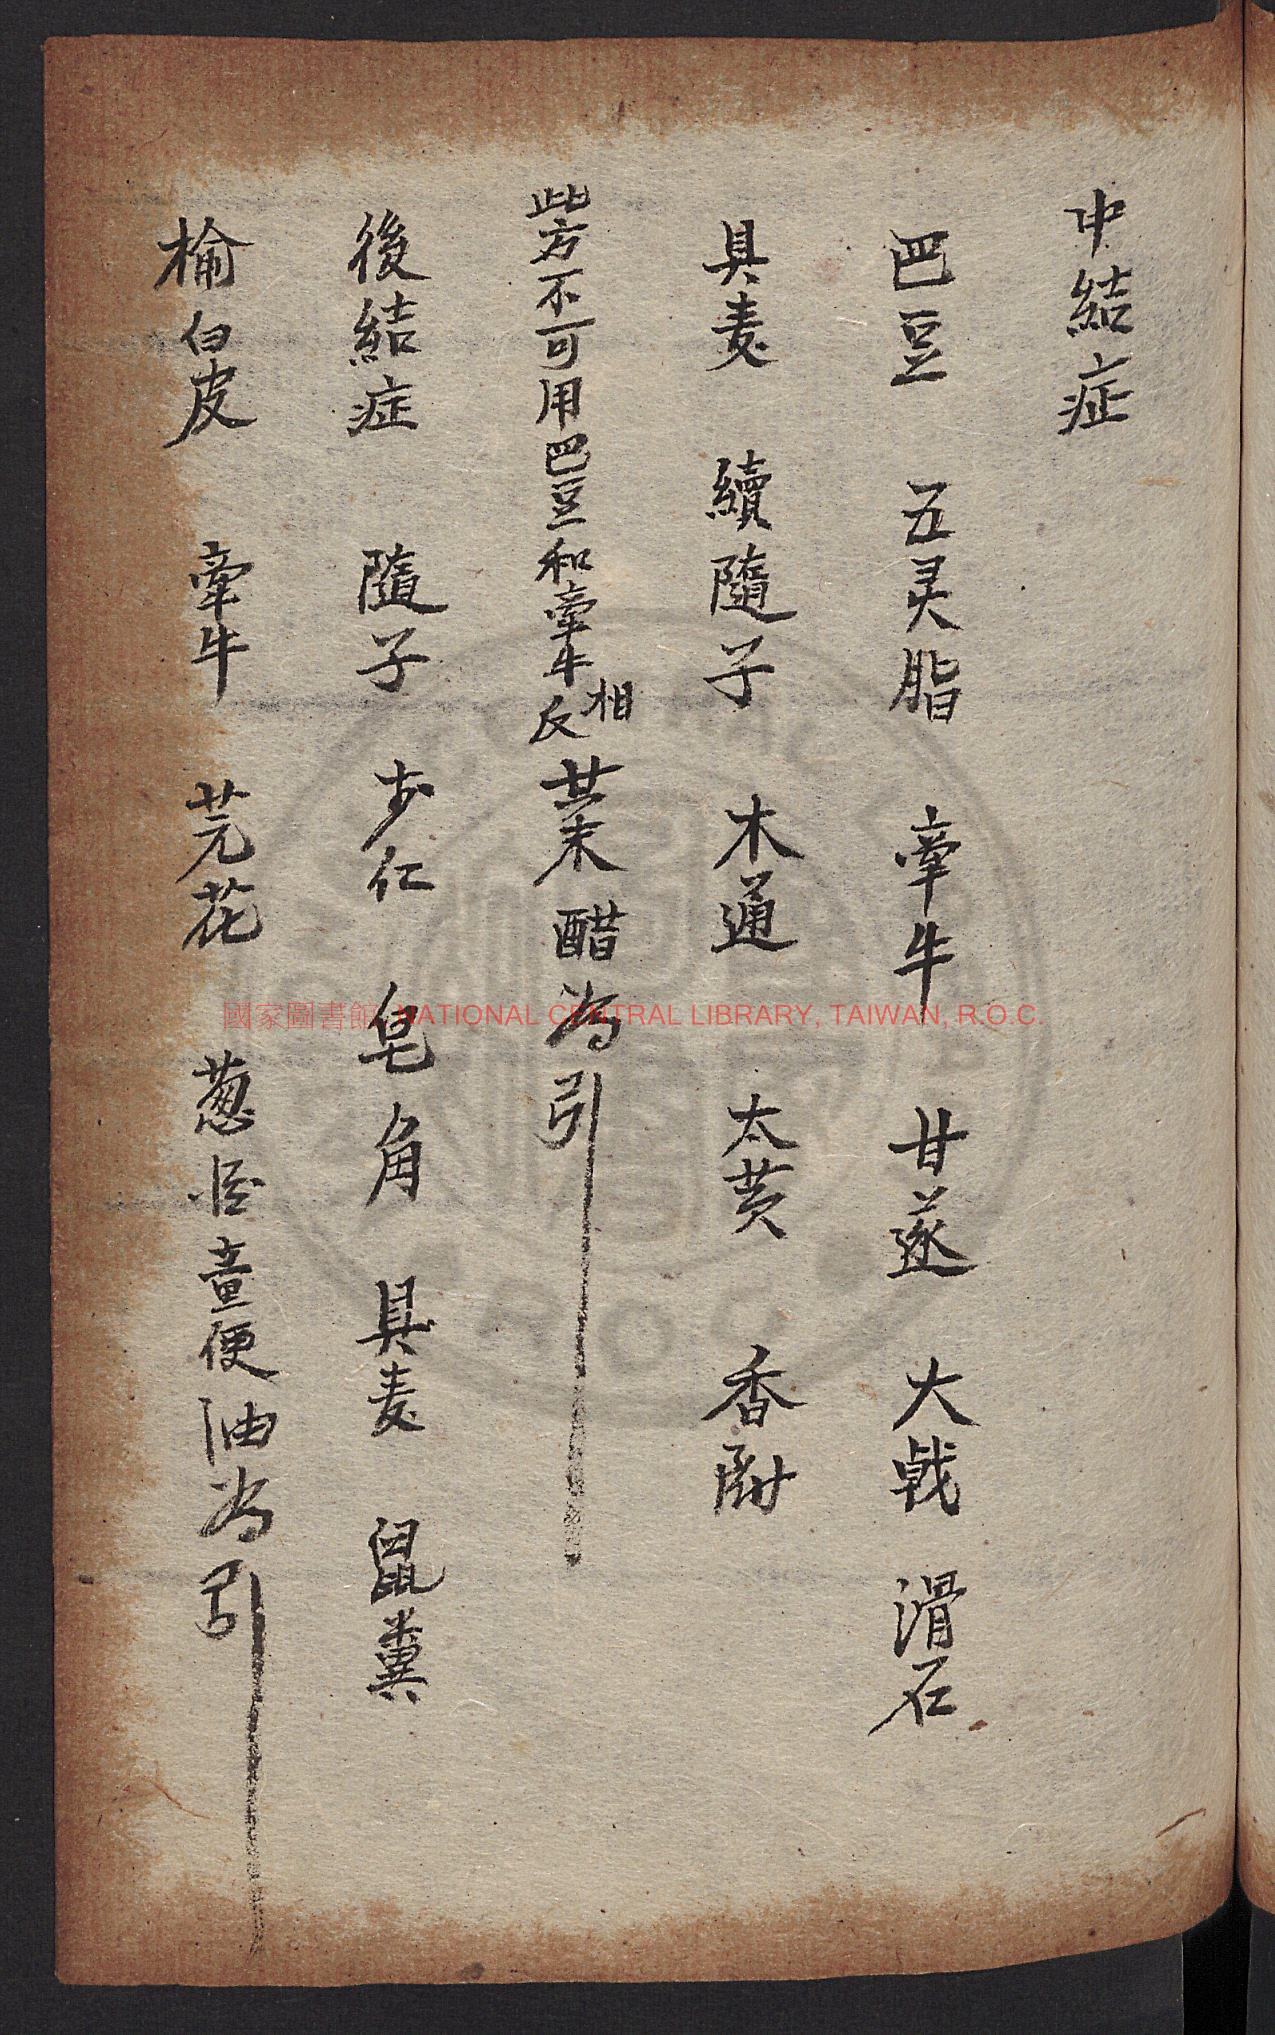 中結症
巴豆 五灵脂 牽牛 甘遂 大戟 滑石
具麦 續隨子 木通 太黄 香附
此方不可用巴豆和牽牛相反 共末 醋為引
後結症 隨子 仁 皂角 具麦 鼠糞
榆白皮 牽牛 芫花 葱 童便油為引
國家圖書館 NATIONAL CENTRAL LIBRARY, TAIWAN, R.O.C.